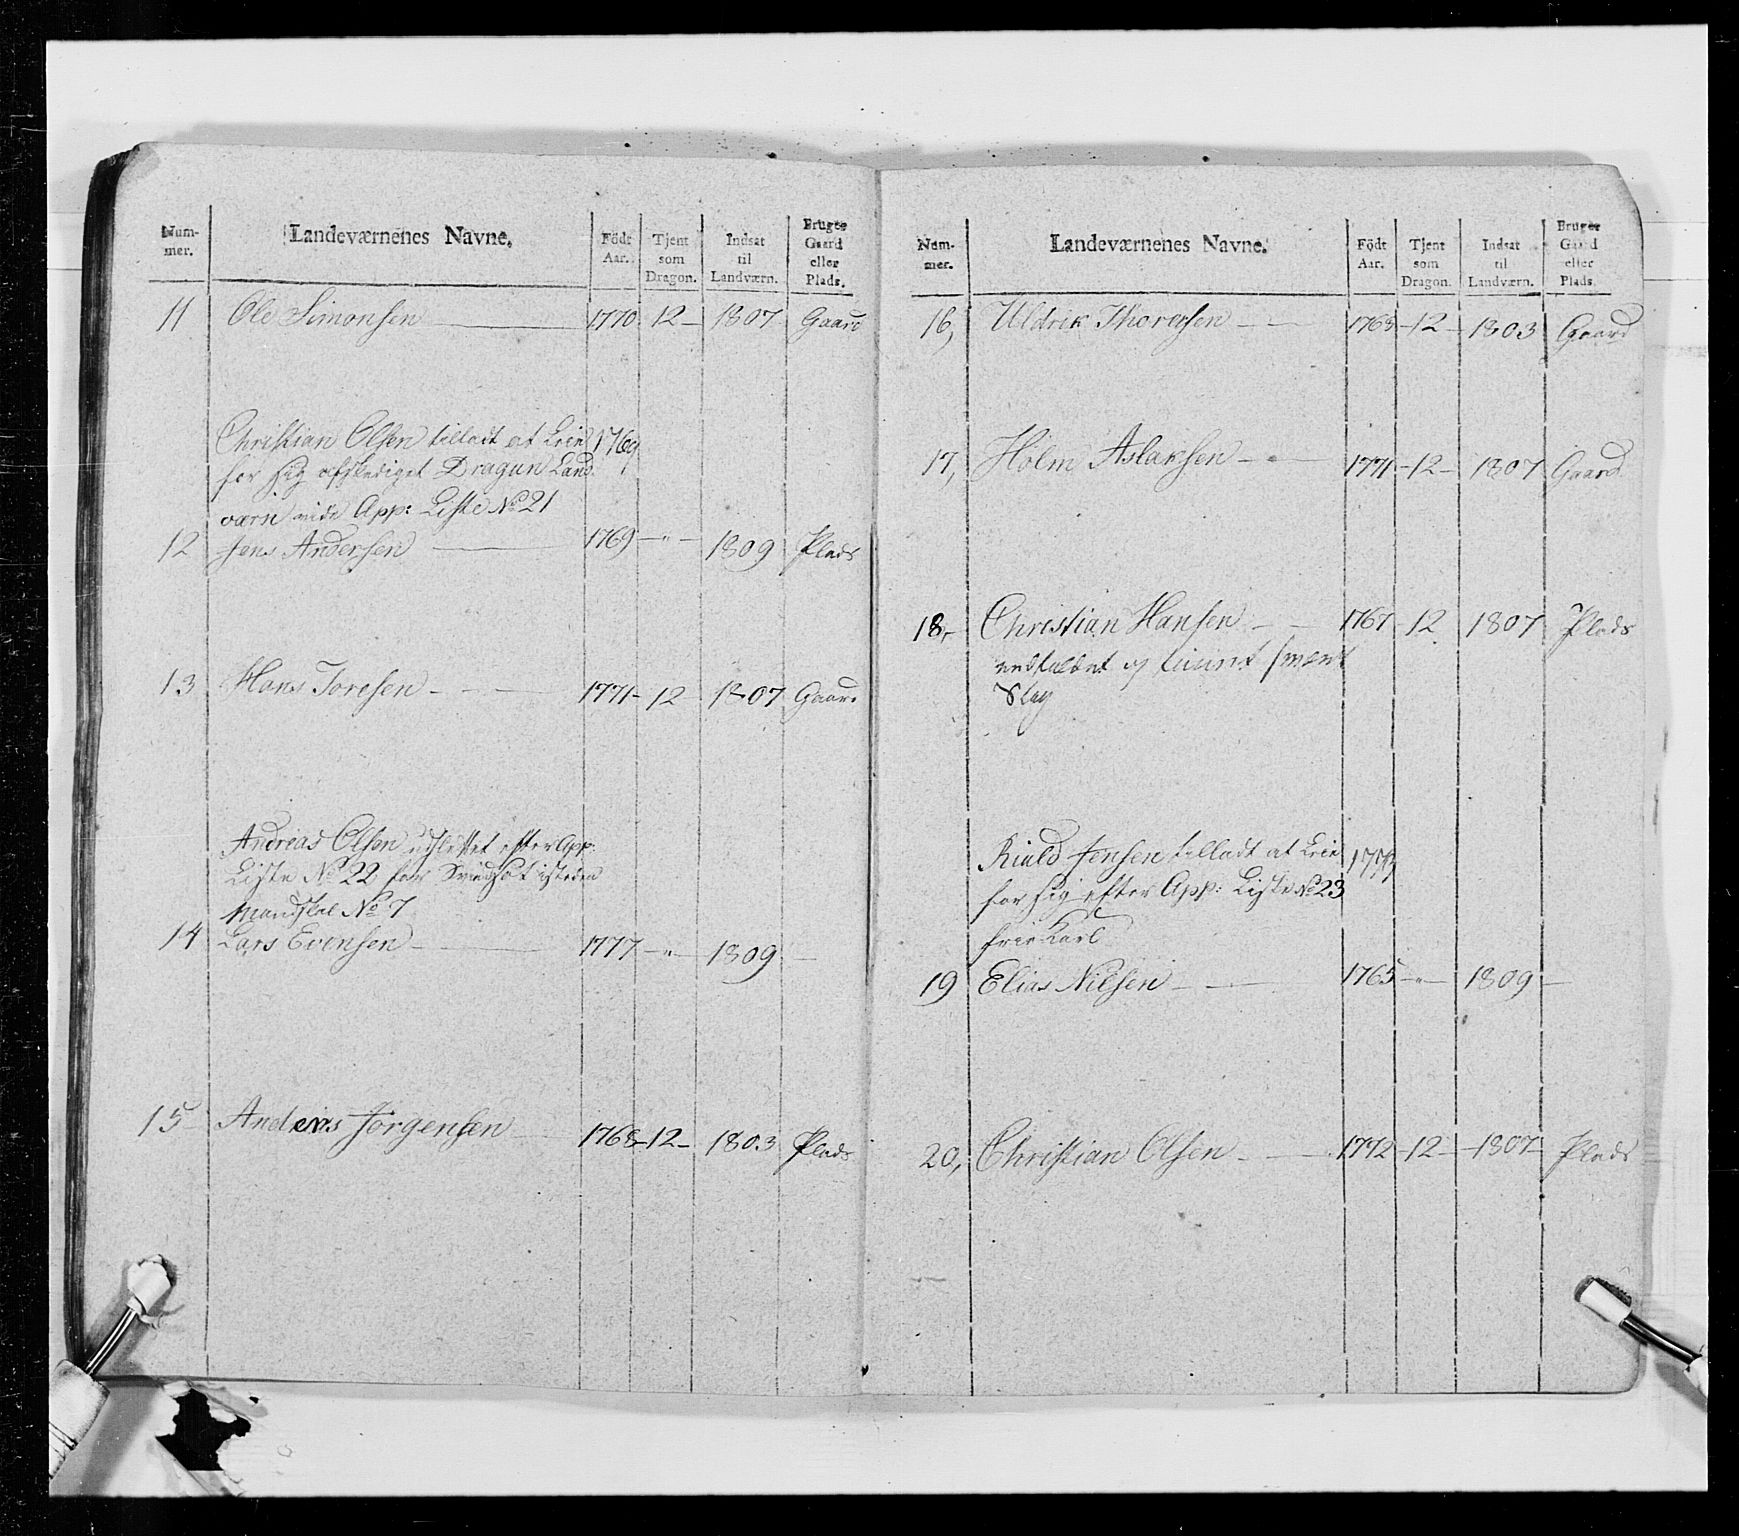 Num-mer. | Landeværnenes Navne. | Födt Aar. | Tjent som Dragon. | Indsat til Landværn. | Bruges Gaard eller Plads.
11 Ole Simonsen 1770 12 1807 Gaard
Christian Olsen tilladt at Leie 1769
for sig afskediget Dragun Land-
værn vide App: Liste No 21
12 Jens Andersen 1769 " 1809 Plads
13 Hans Toresen 1771 12 1807 Gaard
Andreas Olsen udslettet efter App:
Liste No 22 for isteden
Mandskab No 7
14 Lars Evensen 1777 " 1809 —
15 Anders Jørgensen 1768 12 1803 Plads
Num-mer. | Landeværnenes Navne. | Födt Aar. | Tjent som Dragon. | Indsat til Landværn. | Bruges Gaard eller Plads.
16, Uldrik Thoresen 1768 12 1803 Gaard
17, Holm Aslaksen 1771 12 1807 Gaard
18, Christian Hansen 1767 12 1807 Plads
og
Slag
Jensen tilladt at Leie
for sig efter App: Liste No 23
frie Karl
19 Elias Nilsen 1765 " 1809 —
20, Christian Olsen 1772 12 1807 Plads